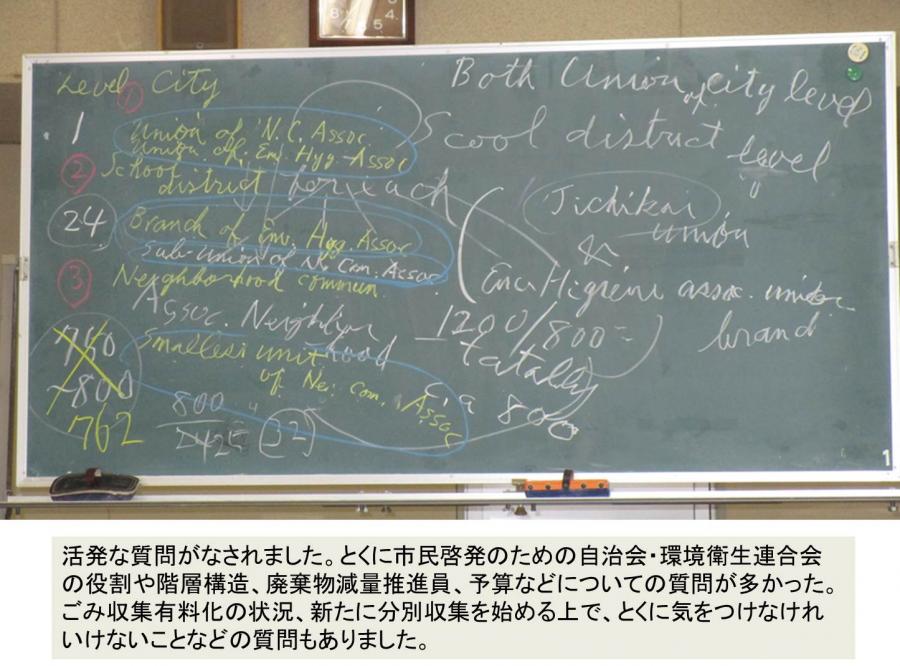 Level ① City
1
Union of N.C. Assoc
Union of Env. Hyg. Assoc
② School
district for each
24
Branch of Env. Hyg. Assoc
Sub-union of Ne. Com. Assoc
③ Neighborhood commun.
Assoc. Neighbor
hood
760
~800
762
Smallest unit
of Ne. Com. Assoc
800
2425 (32)
Both Union of City level
Scool district level
Jichikai
union
&
Env. Higiene assoc. union
branch
1200/800=
totally
c.a 800
1
活発な質問がなされました。とくに市民啓発のための自治会・環境衛生連合会
の役割や階層構造、廃棄物減量推進員、予算などについての質問が多かった。
ごみ収集有料化の状況、新たに分別収集を始める上で、とくに気をつけなけれ
いけないことなどの質問もありました。